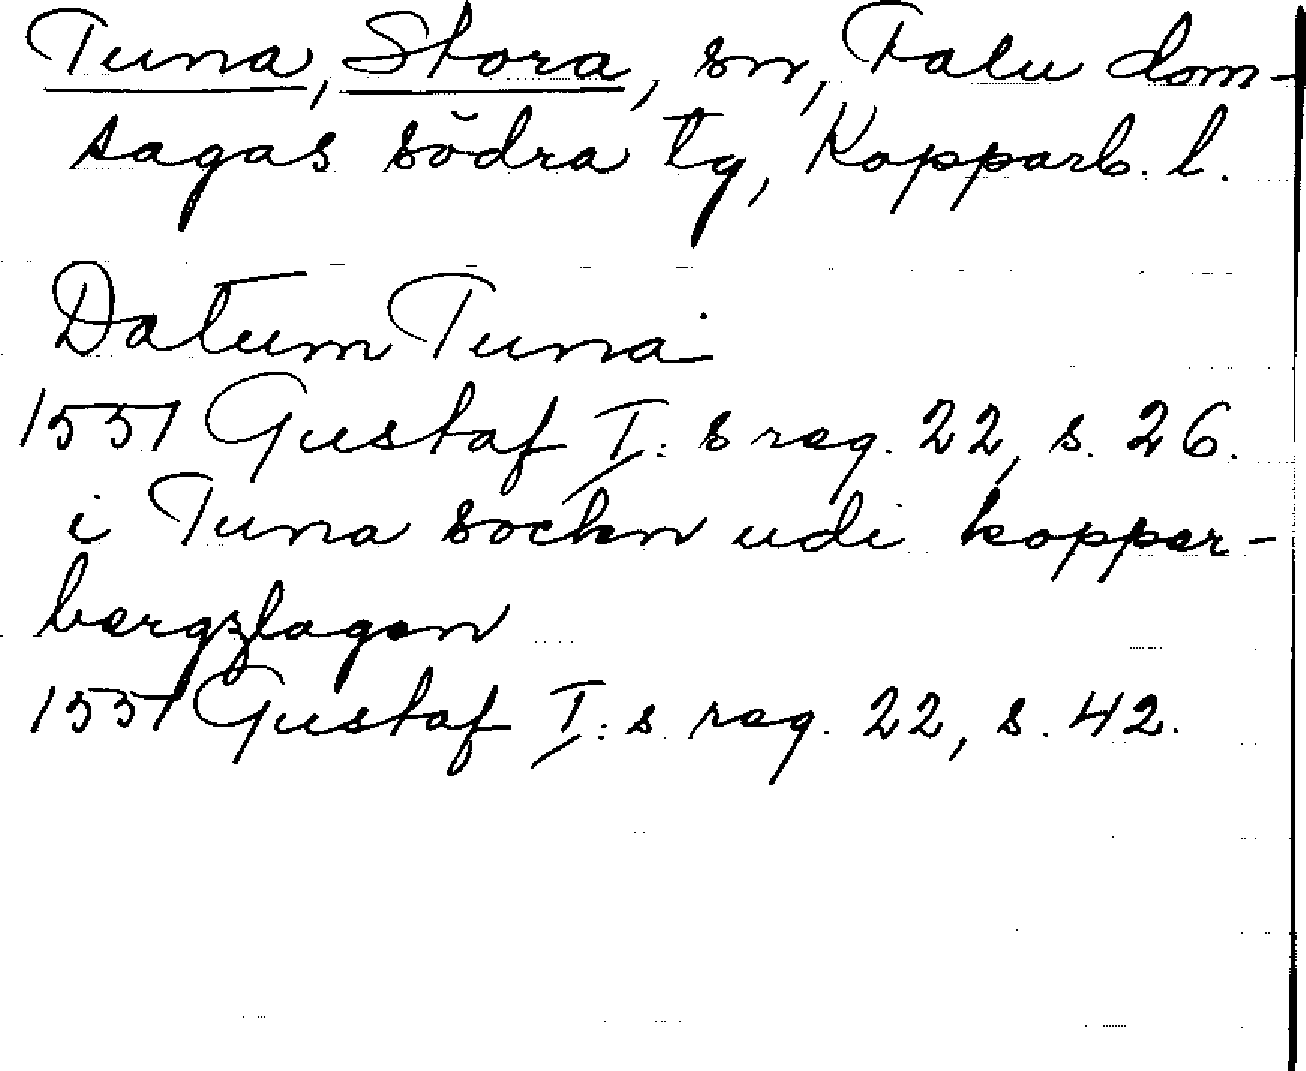 Tuna, Stora, sn, Falu dom-
sagas södra tg, Kopparb. l.
Datum Tuna
1551 Gustaf I:s reg. 22, s. 26.
i Tuna sockn udi koppar-
bergzlagen
1551 Gustaf I:s reg. 22, s. 42.